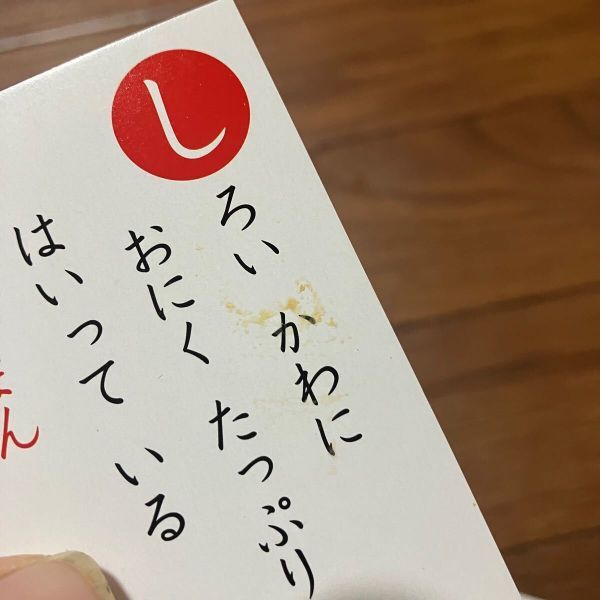 し
ろい かわに
おにく たっぷり
はいって いる
ん